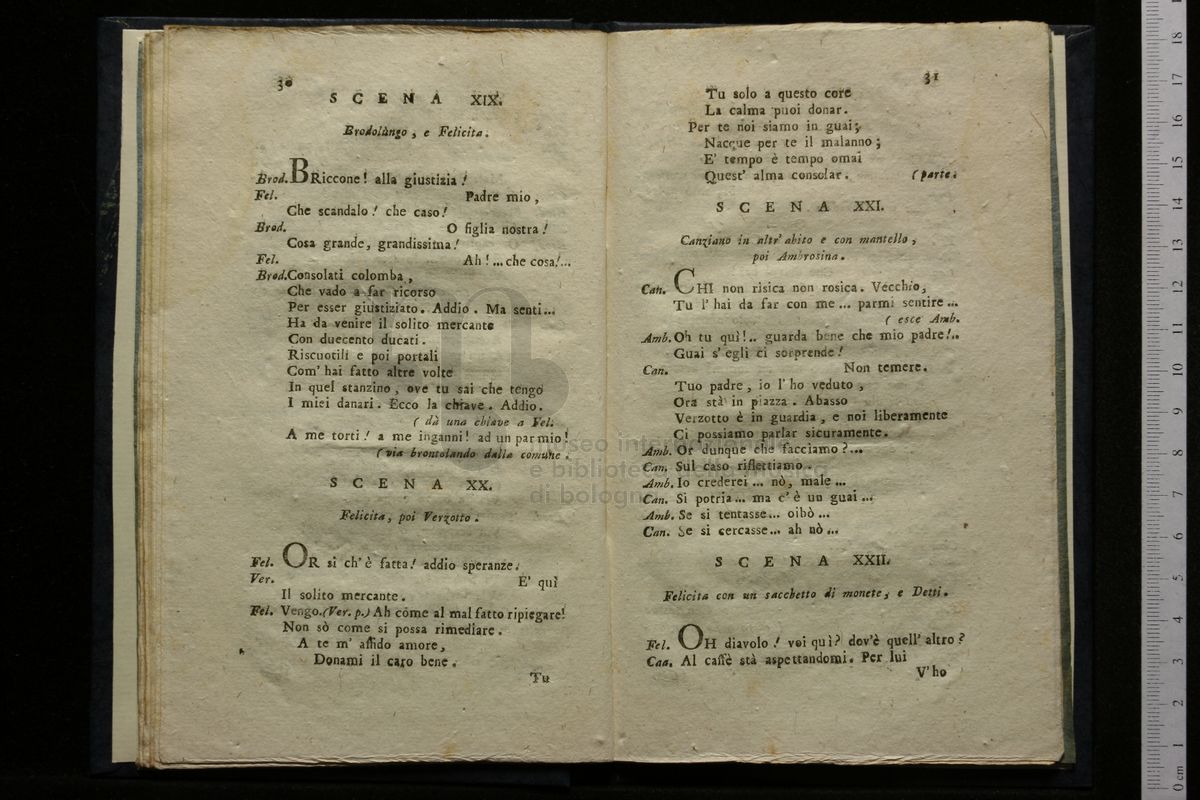 30
SCENA XIX.
Brodolungo, e Felicita.
Brod. BRiccone! alla giustizia!
Fel. Padre mio,
Che scandalo! che caso!
Brod. O figlia nostra!
Cosa grande, grandissima!
Fel. Ah!... che cosa!...
Brod. Consolati colomba,
Che vado a far ricorso
Per esser giustiziato. Addio. Ma senti...
Ha da venire il solito mercante
Con duecento ducati.
Riscuotili e poi portali
Com' hai fatto altre volte
In quel stanzino, ove tu sai che tengo
I miei danari. Ecco la chiave. Addio.
( dà una chiave a Fel.
A me torti! a me inganni! ad un par mio!
( via brontolando dalla comune.
SCENA XX.
Felicita, poi Verzotto.
Fel. OR sì ch' è fatta! addio speranze.
Ver. E' quì
Il solito mercante.
Fel. Vengo. (Ver. p.) Ah come al mal fatto ripiegare!
Non sò come si possa rimediare.
A te m' affido amore,
Donami il caro bene.
Tu
31
Tu solo a questo core
La calma puoi donar.
Per te noi siamo in guai;
Nacque per te il malanno;
E' tempo è tempo omai
Quest' alma consolar. (parte.
SCENA XXI.
Canziano in altr' abito e con mantello,
poi Ambrosina.
Can. CHI non risica non rosica. Vecchio,
Tu l' hai da far con me... parmi sentire...
( esce Amb.
Amb. Oh tu quì!.. guarda bene che mio padre!..
Guai s' egli ci sorprende!
Can. Non temere.
Tuo padre, io l' ho veduto,
Ora stà in piazza. Abasso
Verzotto è in guardia, e noi liberamente
Ci possiamo parlar sicuramente.
Amb. Or dunque che facciamo?...
Can. Sul caso riflettiamo.
Amb. Io crederei... nò, male...
Can. Si potria... ma c' è un guai...
Amb. Se si tentasse... oibò...
Can. Se si cercasse... ah nò...
SCENA XXII.
Felicita con un sacchetto di monete, e Detti.
Fel. OH diavolo! voi quì? dov'è quell' altro?
Can. Al caffè stà aspettandomi. Per lui
V' ho
museo internazionale
e biblioteca della musica
di bologna
0 cm 1 2 3 4 5 6 7 8 9 10 11 12 13 14 15 16 17 18